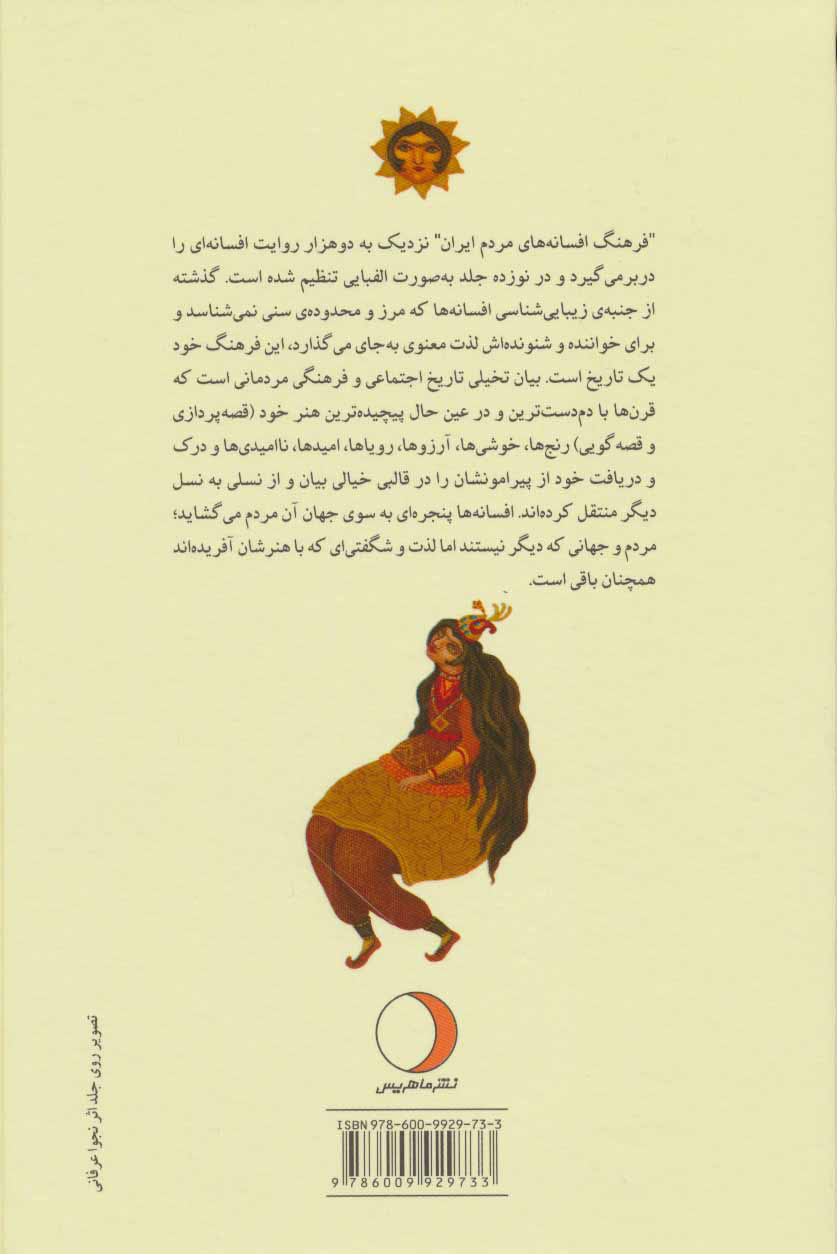 "فرهنگ افسانه‌های مردم ایران" نزدیک به دوهزار روایت افسانه‌ای را
دربرمی‌گیرد و در نوزده جلد به‌صورت الفبایی تنظیم شده است. گذشته
از جنبه‌ی زیبایی‌شناسی افسانه‌ها که مرز و محدوده‌ی سنی نمی‌شناسد و
برای خواننده و شنونده‌اش لذت معنوی به‌جای می‌گذارد، این فرهنگ خود
یک تاریخ است. بیان تخیلی تاریخ اجتماعی و فرهنگی مردمانی است که
قرن‌ها با دم‌دست‌ترین و در عین حال پیچیده‌ترین هنر خود (قصه‌پردازی
و قصه‌گویی) رنج‌ها، خوشی‌ها، آرزوها، رویاها، امیدها، ناامیدی‌ها و درک
و دریافت خود از پیرامونشان را در قالبی خیالی بیان و از نسلی به نسل
دیگر منتقل کرده‌اند. افسانه‌ها پنجره‌ای به سوی جهان آن مردم می‌گشاید؛
مردم و جهانی که دیگر نیستند اما لذت و شگفتی‌ای که با هنرشان آفریده‌اند
همچنان باقی است.
نشر ماهریس
ISBN 978-600-9929-73-3
9 786009 929733
تصویر روی جلد اثر نجوا عرفانی